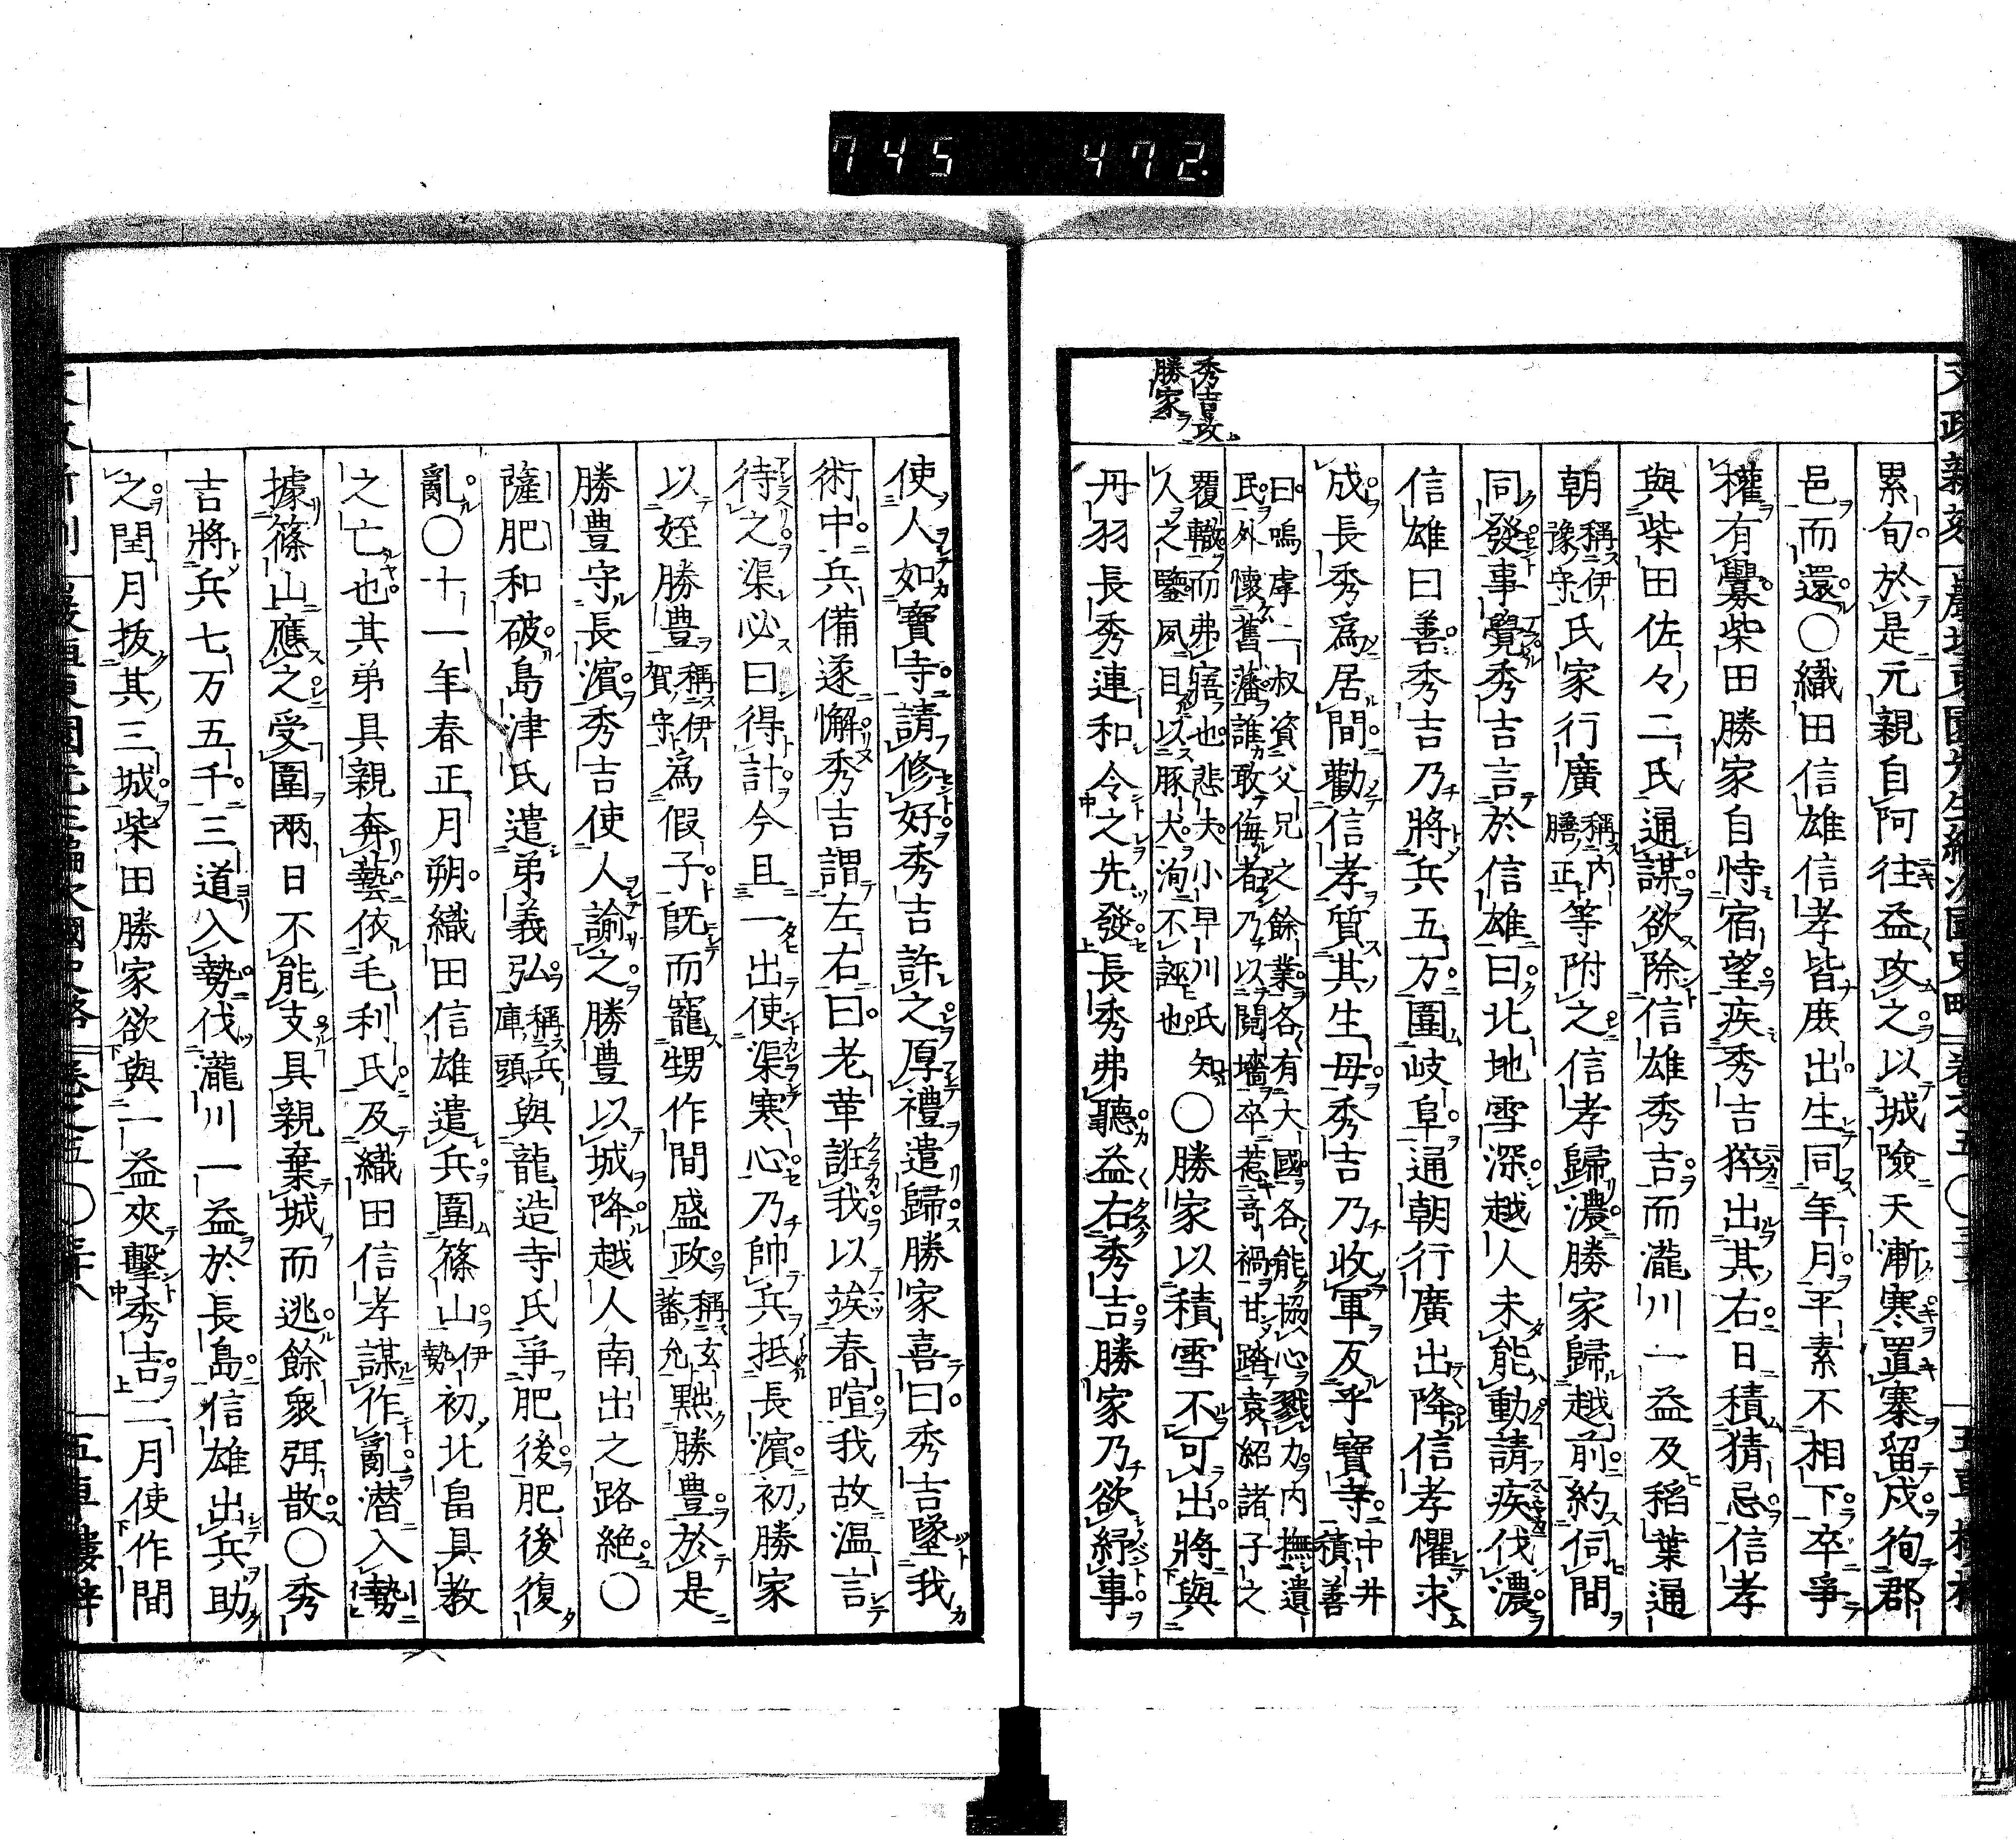 745 472.
秀吉攻
勝家
累旬於是元親自阿往益攻之以城險天漸寒置寨留戍徇郡
邑而還〇織田信雄信孝皆庶出生同年月平素不相下卒爭
權有釁柴田勝家自恃宿望疾秀吉猝出其右日積猜忌信孝
與柴田佐々二氏通謀欲除信雄秀吉而瀧川一益及稻葉通
朝稱伊豫守氏家行廣稱內膳正等附之信孝歸濃勝家歸越前約伺間
同發事覺秀吉言於信雄曰北地雪深越人未能動請疾伐濃
信雄曰善秀吉乃將兵五万圍岐阜通朝行廣出降信孝懼求
成長秀爲居間勸信孝質其生母秀吉乃收軍反乎寶寺中井積善
曰嗚虖二叔資父兄之餘業各有大國各能協心戮力內撫遺
民外懷舊藩誰敢侮者乃以鬩墻卒惹奇禍甘踏袁紹諸子之
覆轍而弗寤也悲夫小早川氏知
人之鑒夙目以豚犬洵不誣也〇勝家以積雪不可出將與
丹羽長秀連和令之先發長秀弗聽益右秀吉勝家乃欲紓事
使人如寶寺請修好秀吉許之厚禮遣歸勝家喜曰秀吉墜我
術中兵備遂懈秀吉謂左右曰老革誑我以竢春暄我故温言
待之渠必曰得計今且一出使渠寒心乃帥兵抵長濱初勝家
以姪勝豊稱伊賀守爲假子旣而寵甥作間盛政稱玄蕃允黜勝豊於是
勝豊守長濱秀吉使人諭之勝豊以城降越人南出之路絶〇
薩肥和破島津氏遣弟義弘稱兵庫頭與龍造寺氏爭肥後肥後復
亂〇十一年春正月朔織田信雄遣兵圍篠山伊勢初北畠具教
之亡也其弟具親奔藝依毛利氏及織田信孝謀作亂潜入勢
據篠山應之受圍兩日不能支具親棄城而逃餘衆弭散〇秀
吉將兵七万五千三道入勢伐瀧川一益於長島信雄出兵助
之閏月拔其三城柴田勝家欲與一益夾擊秀吉二月使作間